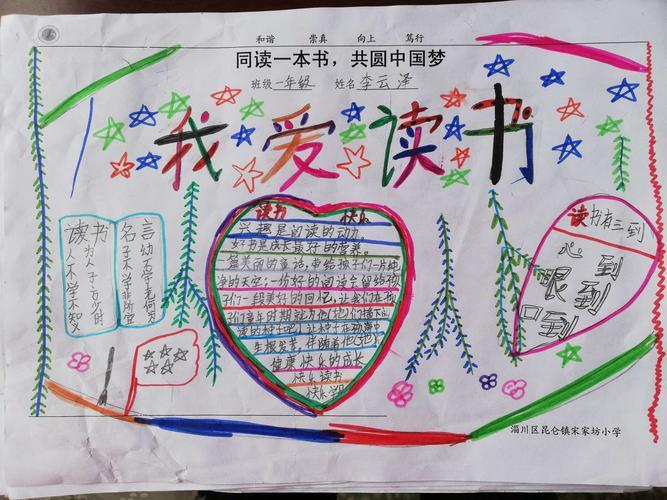 和谐 崇真 向上 笃行
同读一本书，共圆中国梦
班级 一年级 姓名 李云泽
我爱读书
读书 名言
幼不学
老何为
子不学
非所宜
为人子
方少时
人不学
不知
读书 快乐
兴趣是阅读的动力
好书是成长最好的营养。
篇美丽的童话,带给孩子们一片纯
净的天空;一份好的阅读会留给孩
子们一段美好的回忆,让我们在孩
子们童年时期就为他们
生根发芽,伴随着他
健康快乐的成长
快乐读书
快乐
读书有三到
心到
眼到
口到
淄川区昆仑镇宋家坊小学